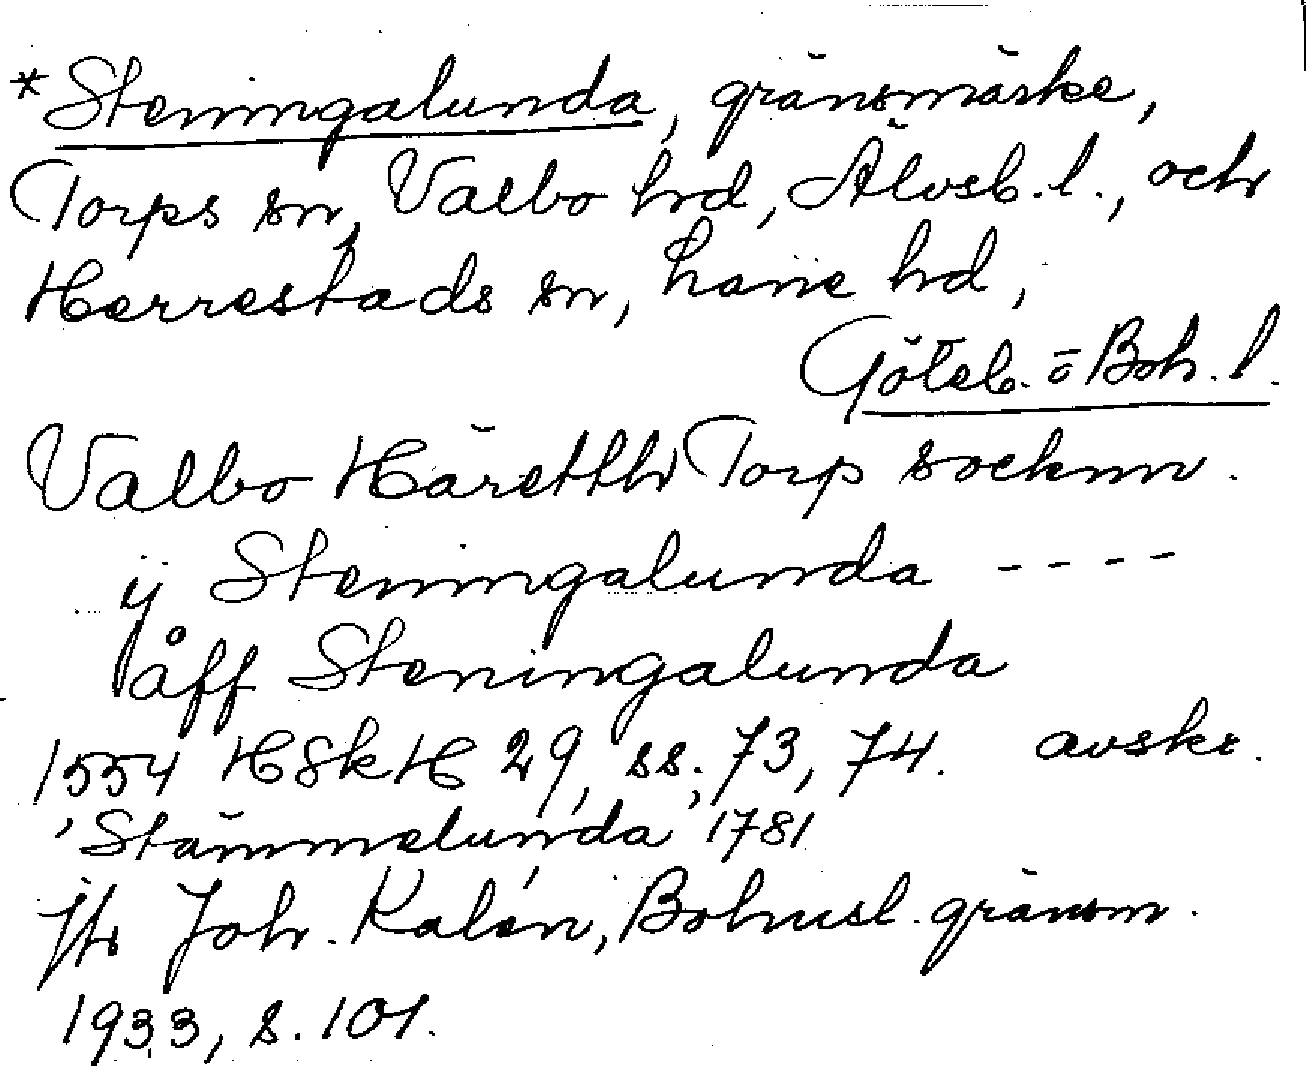 *Steningalunda, gränsmärke,
Torps sn, Valbo hrd, Älvsb. l., och
Herrestads sn, Lane hrd,
Göteb. o Boh. l.
Valbo Häretth Torp socknn.
ij Steningalunda ----
åff Steningalunda
1554 HSkH 29, ss. 73, 74. avskr.
'Stämmelunda' 1781
jfr Joh. Kalén, Bohusl. gränsm.
1933, s. 101.